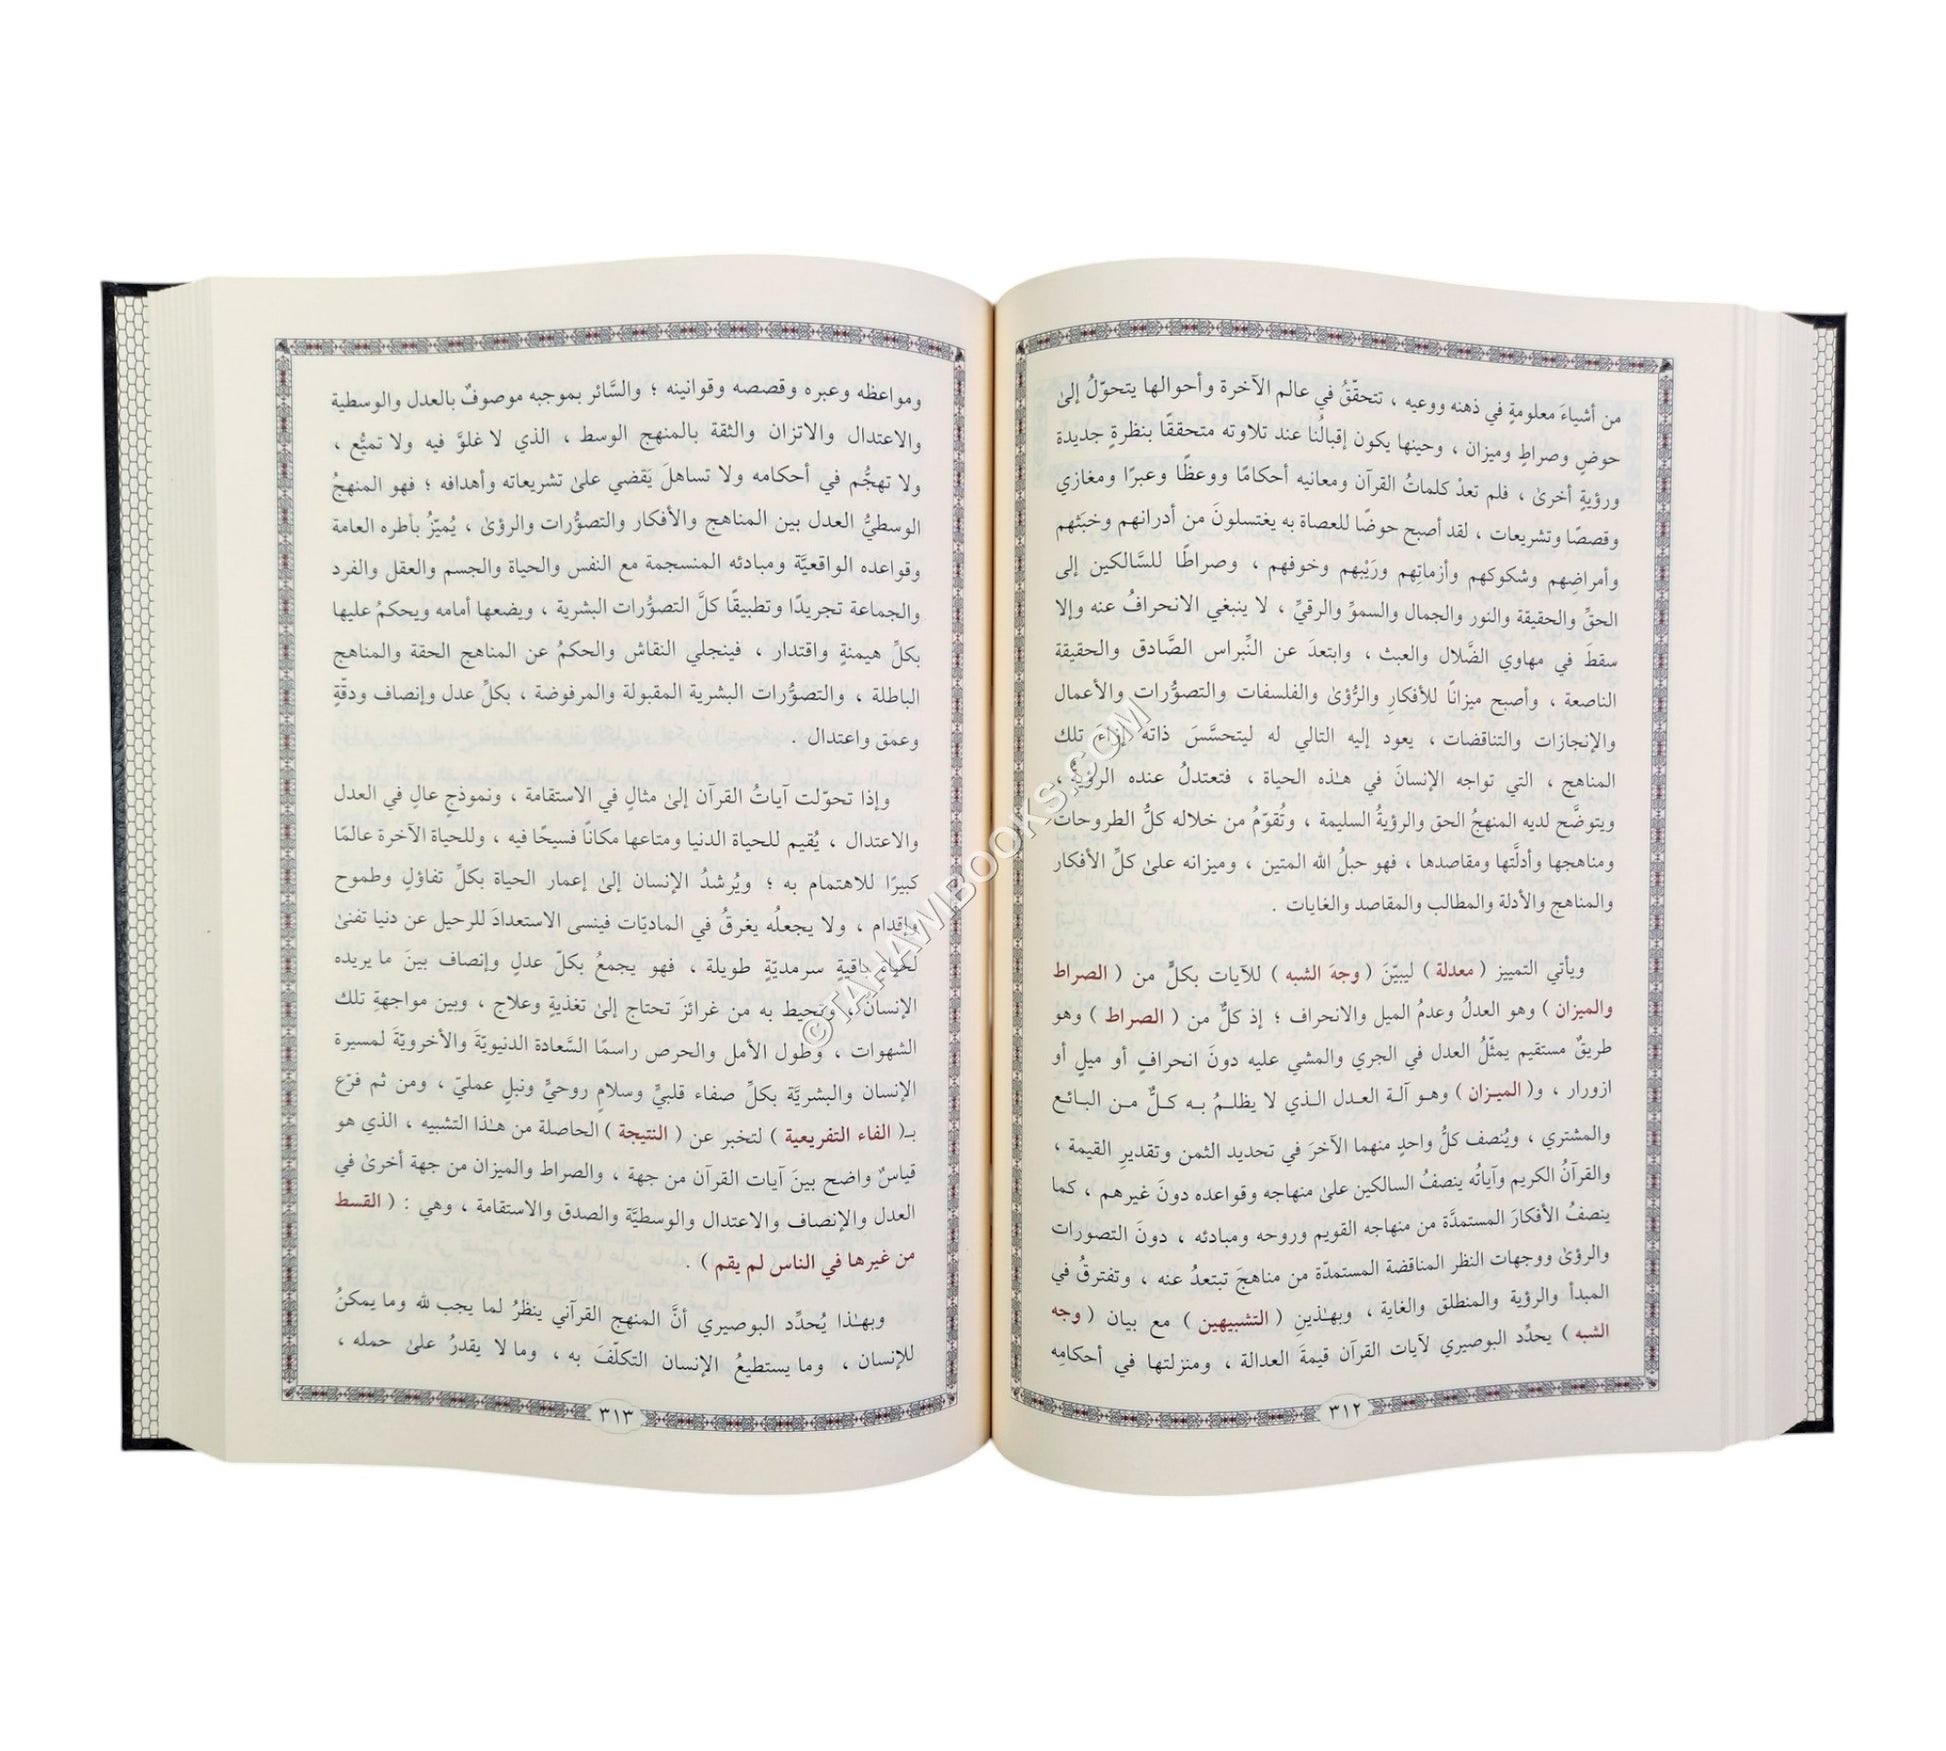 من أشياءَ معلومةٍ في ذهنه ووعيه ، تتحقّقُ في عالم الآخرة وأحوالها يتحوّلُ إلىٰ
حوضٍ وصراطٍ وميزان ، وحينها يكون إقبالُنا عند تلاوته متحققًا بنظرةٍ جديدة
ورؤيةٍ أخرىٰ ، فلم تعدْ كلماتُ القرآن ومعانيه أحكامًا ووعظًا وعبرًا ومغازي
وقصصًا وتشريعات ، لقد أصبح حوضًا للعصاة به يغتسلونَ من أدرانهم وخبَثهم
وأمراضِهم وشكوكهم وأزماتِهم ورَيْبهم وخوفهم ، وصراطًا للسَّالكين إلى
الحقِّ والحقيقة والنور والجمال والسموِّ والرقيِّ ، لا ينبغي الانحرافُ عنه وإلا
سقطَ في مهاوي الضَّلال والعبث ، وابتعدَ عن النِّبراس الصَّادق والحقيقة
الناصعة ، وأصبح ميزانًا للأفكارِ والرُّؤىٰ والفلسفات والتصوُّرات والأعمال
والإنجازات والتناقضات ، يعود إليه التالي له ليتحسَّسَ ذاته إزاء تلك
المناهج ، التي تواجه الإنسانَ في هـٰذه الحياة ، فتعتدلُ عنده الرؤية ،
ويتوضَّح لديه المنهجُ الحق والرؤيةُ السليمة ، وتُقوّمُ من خلاله كلُّ الطروحات
ومناهجها وأدلَّتها ومقاصدها ، فهو حبلُ الله المتين ، وميزانه علىٰ كلِّ الأفكار
والمناهج والأدلة والمطالب والمقاصد والغايات .
ويأتي التمييز ( معدلة ) ليبيّنَ ( وجهَ الشبه ) للآيات بكلٍّ من ( الصراط
والميزان ) وهو العدلُ وعدمُ الميل والانحراف ؛ إذ كلٌّ من ( الصراط ) وهو
طريقٌ مستقيم يمثّلُ العدل في الجري والمشي عليه دونَ انحرافٍ أو ميلٍ أو
ازورار ، و( الميـزان ) وهـو آلـة العـدل الـذي لا يظلـمُ بـه كـلٌّ مـن البـائـع
والمشتري ، ويُنصف كلُّ واحدٍ منهما الآخرَ في تحديد الثمن وتقديرِ القيمة ،
والقرآنُ الكريم وآياتُه ينصفُ السالكين علىٰ منهاجه وقواعده دونَ غيرهم ، كما
ينصفُ الأفكارَ المستمدَّة من منهاجه القويم وروحه ومبادئه ، دونَ التصورات
والرؤىٰ ووجهات النظر المناقضة المستمدّة من مناهجَ تبتعدُ عنه ، وتفترقُ في
المبدأ والرؤية والمنطلق والغاية ، وبهـٰذينِ ( التشبيهين ) مع بيان ( وجه
الشبه ) يحدِّد البوصيري لآيات القرآن قيمةَ العدالة ، ومنزلتها في أحكامِه
٣١٢
ومواعظه وعبره وقصصه وقوانينه ؛ والسَّائر بموجبه موصوفٌ بالعدل والوسطية
والاعتدال والاتزان والثقة بالمنهج الوسط ، الذي لا غلوَّ فيه ولا تميُّع ،
ولا تهجُّم في أحكامه ولا تساهلَ يَقضي علىٰ تشريعاته وأهدافه ؛ فهو المنهجُ
الوسطيُّ العدل بين المناهج والأفكار والتصوُّرات والرؤىٰ ، يُميّزُ بأطره العامة
وقواعده الواقعيَّة ومبادئه المنسجمة مع النفس والحياة والجسم والعقل والفرد
والجماعة تجريدًا وتطبيقًا كلَّ التصوُّرات البشرية ، ويضعها أمامه ويحكمُ عليها
بكلِّ هيمنةٍ واقتدار ، فينجلي النقاش والحكمُ عن المناهج الحقة والمناهج
الباطلة ، والتصوُّرات البشرية المقبولة والمرفوضة ، بكلِّ عدل وإنصاف ودقّةٍ
وعمق واعتدال .
وإذا تحوّلت آياتُ القرآن إلىٰ مثالٍ في الاستقامة ، ونموذجٍ عالٍ في العدل
والاعتدال ، يُقيم للحياة الدنيا ومتاعها مكانًا فسيحًا فيه ، وللحياة الآخرة عالمًا
كبيرًا للاهتمام به ؛ ويُرشدُ الإنسان إلىٰ إعمار الحياة بكلِّ تفاؤلٍ وطموح
وإقدام ، ولا يجعلُه يغرقُ في الماديّات فينسى الاستعدادَ للرحيل عن دنيا تفنىٰ
لحياةٍ باقيةٍ سرمديّةٍ طويلة ، فهو يجمعُ بكلّ عدلٍ وإنصاف بينَ ما يريده
الإنسانُ ، وتحيط به من غرائزَ تحتاج إلىٰ تغذيةٍ وعلاج ، وبين مواجهةِ تلك
الشهوات ، وطول الأمل والحرص راسمًا السَّعادة الدنيويّةَ والأخرويّةَ لمسيرة
الإنسان والبشريَّة بكلِّ صفاء قلبيٍّ وسلامٍ روحيٍّ ونبلٍ عمليّ ، ومن ثم فرّع
بـ( الفاء التفريعية ) لتخبر عن ( النتيجة ) الحاصلة من هـٰذا التشبيه ، الذي هو
قياسٌ واضح بينَ آيات القرآن من جهة ، والصراط والميزان من جهة أخرىٰ في
العدل والإنصاف والاعتدال والوسطيَّة والصدق والاستقامة ، وهي : ( القسط
من غيرها في الناس لم يقم ) .
وبهـٰذا يُحدِّد البوصيري أنَّ المنهج القرآني ينظرُ لما يجب لله وما يمكنُ
للإنسان ، وما يستطيعُ الإنسان التكلّفَ به ، وما لا يقدرُ علىٰ حمله ،
٣١٣
©TAHAWIBOOKS.COM